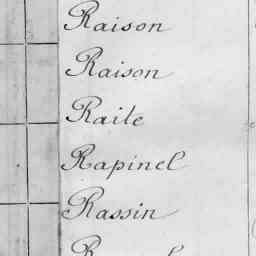 Raison
Raison
Raite
Rapinel
Rassin